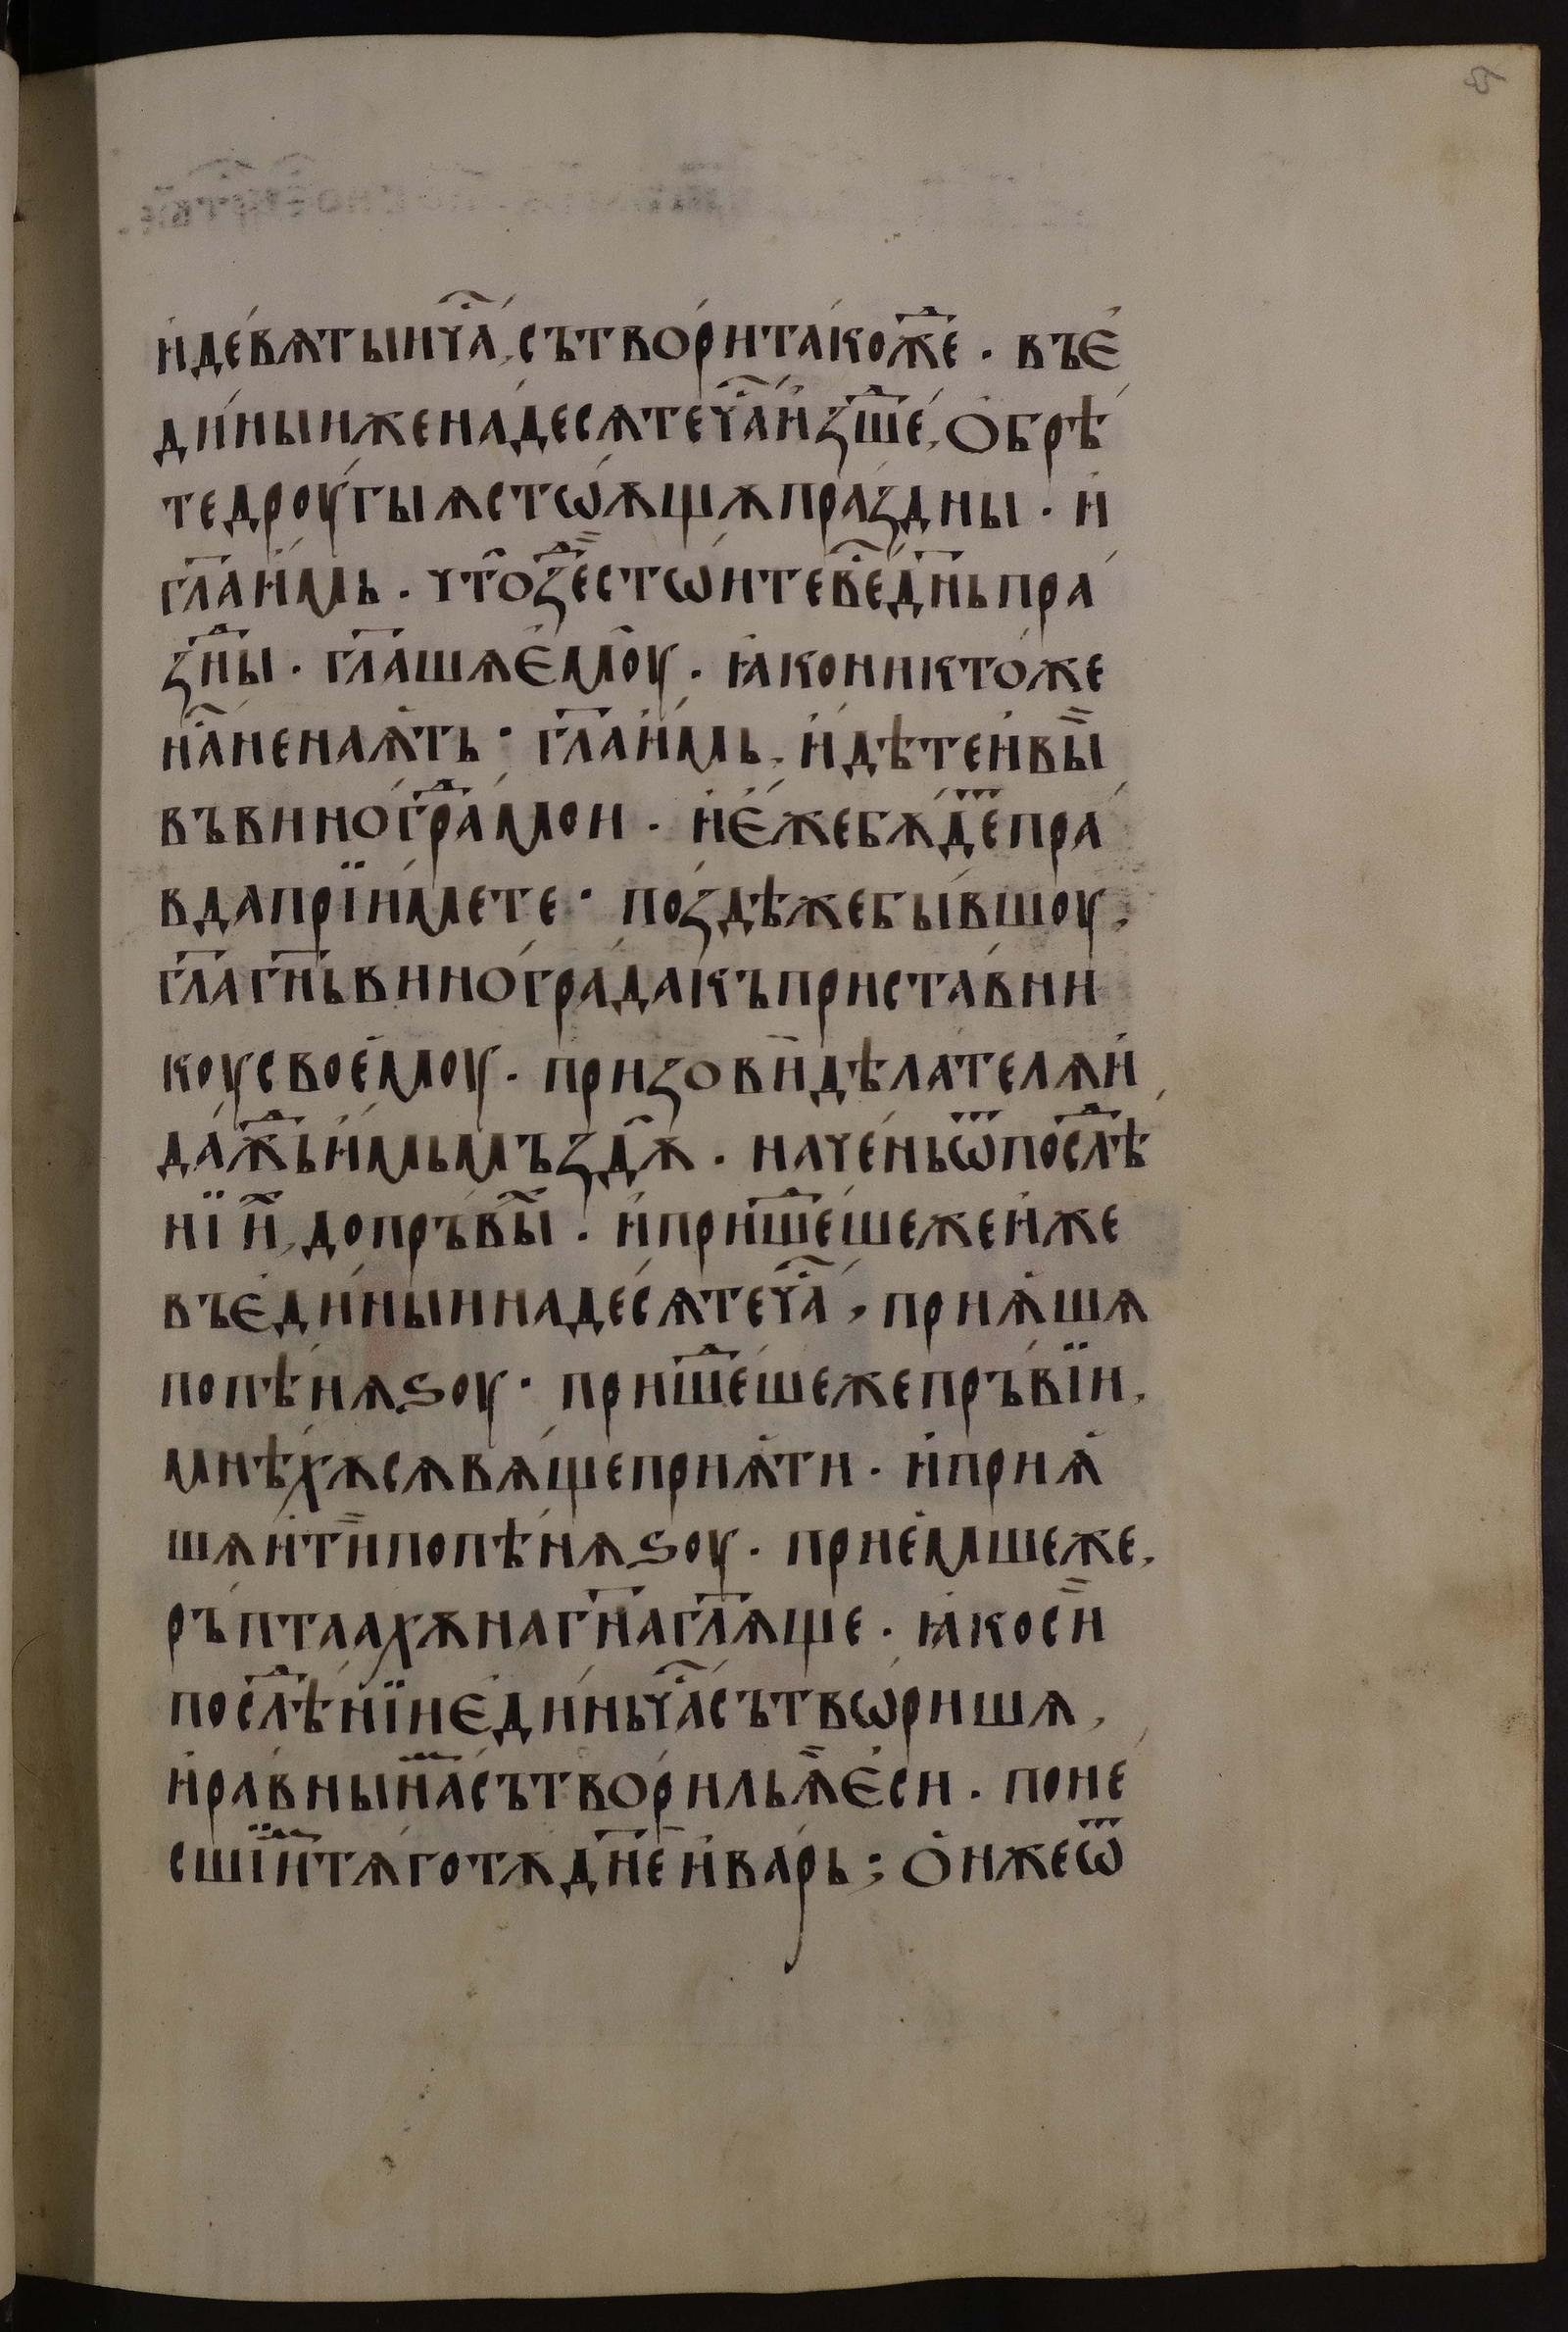 и҆деваты́ичⷭ҇а, сътвори́та́кожⷣе. въе҆
ди́ныижена́десѧте҆чⷭ҇а́и҆зшⷣе́, ѻ҆брѣ́
тедроу́гыѧстѡ́ѫщѧпра́здны. и҆
гл҃аи҆́мь. что̑зⷣе́стѡ́итевⷭ҇е́дн҃ьпра́
зⷣны. гл҃ашѧе҆мо̑у. ꙗ҆коникто́же
на́ⷭ҇ненаѧ҆́ть· гл҃аи҆́мь, и҆дѣ́теи҆вы̏
въвинѻ́грⷣа́мои. и҆е҆́жебѫ́деⷮпра́
вдапрїи҆́мете· по́здѣжебы́вшоу,
гл҃агн҃ьвинѻ́гра́дакъприста́вни
коусвоемоу. призовѝдѣ́лателѧи҆
да́жⷣьи҆́мьмъзд̑ѫ. наче́ньѿⷮпослⷣѣ́
нїиⷯ, допръ́выⷯ. и҆пришⷣе́шежеи҆́же
въе҆ди́ныинаде́сѧтечⷭ҇а́, приѧ҆́шѧ
попѣ́нѧѕоу· пришⷣе́шежепръ́вїи,
мнѣ́хѫсѧвѧ́щеприѧ҆́ти. и҆приѧ҆́
шѧи҆ти̏попѣ́нѧѕоу. прие́мшеже,
ръ́птаахѫнагн҃агл҃ѧще. ꙗ҆коси̏
послⷣѣ́нїие҆ди́ньчⷭ҇а́сътвѡ́ришѧ,
и҆ра́вныⷯна́съⷨтвори́льѧ҆̏е҆си. поне́
сшїиⷨтѧ́готѫдн҃еи҆ва́рь; ѻ҆́нжеѿⷮ